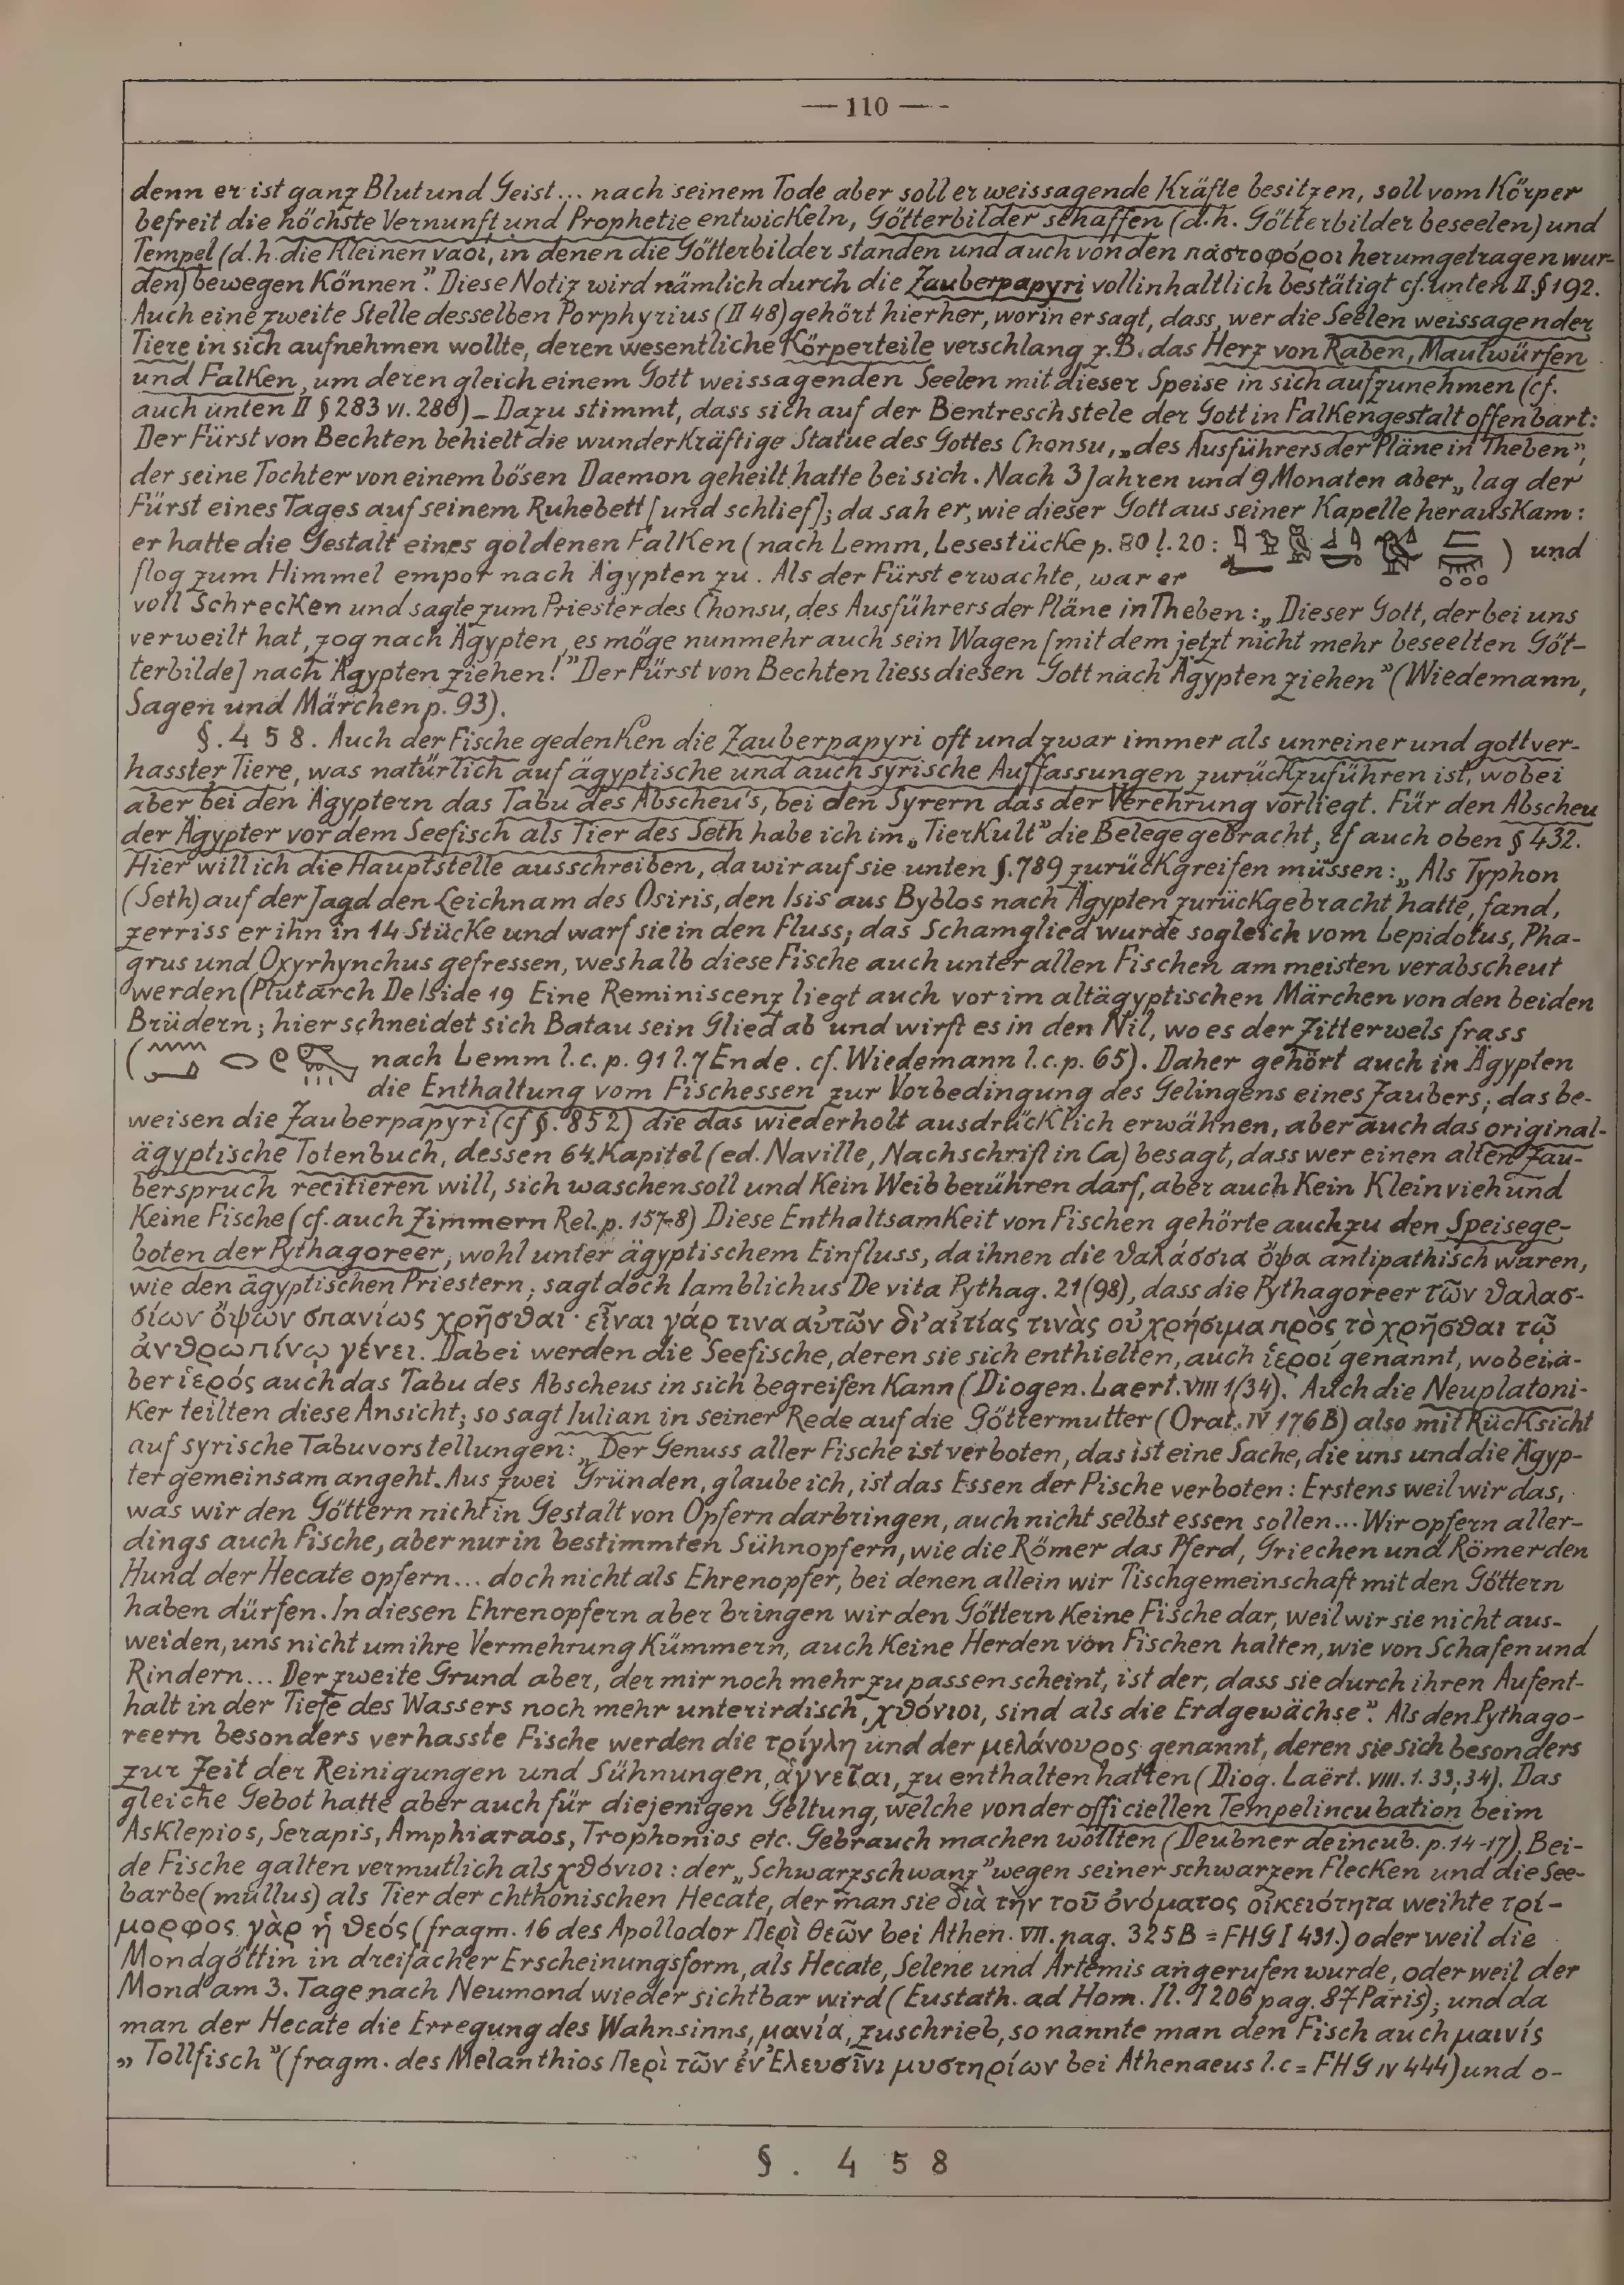 — 110 —
denn er ist ganz Blut und Geist... nach seinem Tode aber soll er weissagende Kräfte besitzen, soll vom Körper
befreit die höchste Vernunft und Prophetie entwickeln, Götterbilder schaffen (d.h. Götterbilder beseelen) und
Tempel (d.h. die kleinen ναοί, in denen die Götterbilder standen und auch von den παστοφόροι herumgetragen wur-
den) bewegen können". Diese Notiz wird nämlich durch die Zauberpapyri vollinhaltlich bestätigt cf. unten II. § 192.
Auch eine zweite Stelle desselben Porphyrius (II 48) gehört hierher, worin er sagt, dass, wer die Seelen weissagender
Tiere in sich aufnehmen wollte, deren wesentliche Körperteile verschlang z.B. das Herz von Raben, Maulwürfen
und Falken, um deren gleich einem Gott weissagenden Seelen mit dieser Speise in sich aufzunehmen (cf.
auch unten II § 283 VI. 286) – Dazu stimmt, dass sich auf der Bentreschstele der Gott in Falkengestalt offenbart:
Der Fürst von Bechten behielt die wunderkräftige Statue des Gottes Chonsu, „des Ausführers der Pläne in Theben",
der seine Tochter von einem bösen Daemon geheilt hatte bei sich. Nach 3 Jahren und 9 Monaten aber „lag der
Fürst eines Tages auf seinem Ruhebett [und schlief]; da sah er, wie dieser Gott aus seiner Kapelle herauskam:
er hatte die Gestalt eines goldenen Falken (nach Lemm, Lesestücke p. 80 l. 20: ) und
flog zum Himmel empor nach Ägypten zu. Als der Fürst erwachte, war er
voll Schrecken und sagte zum Priester des Chonsu, des Ausführers der Pläne in Theben: „Dieser Gott, der bei uns
verweilt hat, zog nach Ägypten, es möge nunmehr auch sein Wagen [mit dem jetzt nicht mehr beseelten Göt-
terbilde] nach Ägypten ziehen!" Der Fürst von Bechten liess diesen Gott nach Ägypten ziehen" (Wiedemann,
Sagen und Märchen p. 93).
§. 458. Auch der Fische gedenken die Zauberpapyri oft und zwar immer als unreiner und gottver-
hasster Tiere, was natürlich auf ägyptische und auch syrische Auffassungen zurückzuführen ist, wobei
aber bei den Ägyptern das Tabu des Abscheu's, bei den Syrern das der Verehrung vorliegt. Für den Abscheu
der Ägypter vor dem Seefisch als Tier des Seth habe ich im „Tierkult" die Belege gebracht, cf auch oben § 432.
Hier will ich die Hauptstelle ausschreiben, da wir auf sie unten §. 789 zurückgreifen müssen: „Als Typhon
(Seth) auf der Jagd den Leichnam des Osiris, den Isis aus Byblos nach Ägypten zurückgebracht hatte, fand,
zerriss er ihn in 14 Stücke und warf sie in den Fluss; das Schamglied wurde sogleich vom Lepidotus, Pha-
grus und Oxyrhynchus gefressen, weshalb diese Fische auch unter allen Fischen am meisten verabscheut
werden (Plutarch De Iside 19 Eine Reminiscenz liegt auch vor im altägyptischen Märchen von den beiden
Brüdern; hier schneidet sich Batau sein Glied ab und wirft es in den Nil, wo es der Zitterwels frass
( nach Lemm l.c. p. 91 l. 7 Ende. cf. Wiedemann l.c. p. 65). Daher gehört auch in Ägypten
die Enthaltung vom Fischessen zur Vorbedingung des Gelingens eines Zaubers; das be-
weisen die Zauberpapyri (cf §. 852) die das wiederholt ausdrücklich erwähnen, aber auch das original-
ägyptische Totenbuch, dessen 64. Kapitel (ed. Naville, Nachschrift in Ca) besagt, dass wer einen alten Zau-
berspruch recitieren will, sich waschen soll und kein Weib berühren darf, aber auch kein Kleinvieh und
keine Fische (cf. auch Zimmern Rel. p. 157-8) Diese Enthaltsamkeit von Fischen gehörte auch zu den Speisege-
boten der Pythagoreer, wohl unter ägyptischem Einfluss, da ihnen die θαλάσσια ὄψα antipathisch waren,
wie den ägyptischen Priestern; sagt doch Iamblichus De vita Pythag. 21 (98), dass die Pythagoreer τῶν θαλασ-
σίων ὄψων σπανίως χρῆσθαι· εἶναι γάρ τινα αὐτῶν δι' αἰτίας τινὰς οὐ χρήσιμα πρὸς τὸ χρῆσθαι τῷ
ἀνθρωπίνῳ γένει. Dabei werden die Seefische, deren sie sich enthielten, auch ἱεροί genannt, wobei a-
ber ἱερός auch das Tabu des Abscheus in sich begreifen kann (Diogen. Laert. VIII 1 (34). Auch die Neuplatoni-
ker teilten diese Ansicht; so sagt Iulian in seiner Rede auf die Göttermutter (Orat. IV 176 B) also mit Rücksicht
auf syrische Tabuvorstellungen: „Der Genuss aller Fische ist verboten, das ist eine Sache, die uns und die Ägyp-
ter gemeinsam angeht. Aus zwei Gründen, glaube ich, ist das Essen der Fische verboten: Erstens weil wir das,
was wir den Göttern nicht in Gestalt von Opfern darbringen, auch nicht selbst essen sollen... Wir opfern aller-
dings auch Fische, aber nur in bestimmten Sühnopfern, wie die Römer das Pferd, Griechen und Römer den
Hund der Hecate opfern... doch nicht als Ehrenopfer, bei denen allein wir Tischgemeinschaft mit den Göttern
haben dürfen. In diesen Ehrenopfern aber bringen wir den Göttern keine Fische dar, weil wir sie nicht aus-
weiden, uns nicht um ihre Vermehrung kümmern, auch keine Herden von Fischen halten, wie von Schafen und
Rindern... Der zweite Grund aber, der mir noch mehr zu passen scheint, ist der, dass sie durch ihren Aufent-
halt in der Tiefe des Wassers noch mehr unterirdisch, χθόνιοι, sind als die Erdgewächse". Als den Pythago-
reern besonders verhasste Fische werden die τρίγλη und der μελάνουρος genannt, deren sie sich besonders
zur Zeit der Reinigungen und Sühnungen, ἁγνεῖαι, zu enthalten hatten (Diog. Laërt. VIII. 1. 33, 34). Das
gleiche Gebot hatte aber auch für diejenigen Geltung, welche von der officiellen Tempelincubation beim
Asklepios, Serapis, Amphiaraos, Trophonios etc. Gebrauch machen wollten (Deubner de incub. p. 14-17). Bei-
de Fische galten vermutlich als χθόνιοι: der „Schwarzschwanz" wegen seiner schwarzen Flecken und die See-
barbe (mullus) als Tier der chthonischen Hecate, der man sie διὰ τὴν τοῦ ὀνόματος οἰκειότητα weihte τρί-
μορφος γὰρ ἡ θεός (fragm. 16 des Apollodor Περὶ θεῶν bei Athen. VII. pag. 325 B = FHG I 431.) oder weil die
Mondgöttin in dreifacher Erscheinungsform, als Hecate, Selene und Artemis angerufen wurde, oder weil der
Mond am 3. Tage nach Neumond wieder sichtbar wird (Eustath. ad Hom. Il. I 206 pag. 87 Paris); und da
man der Hecate die Erregung des Wahnsinns, μανία, zuschrieb, so nannte man den Fisch auch μαινίς
„Tollfisch" (fragm. des Melanthios Περὶ τῶν ἐν Ἐλευσῖνι μυστηρίων bei Athenaeus l.c = FHG IV 444) und o-
§. 458